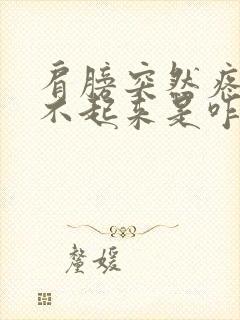 肩膀突然疼
不起来是咋
鳌媛